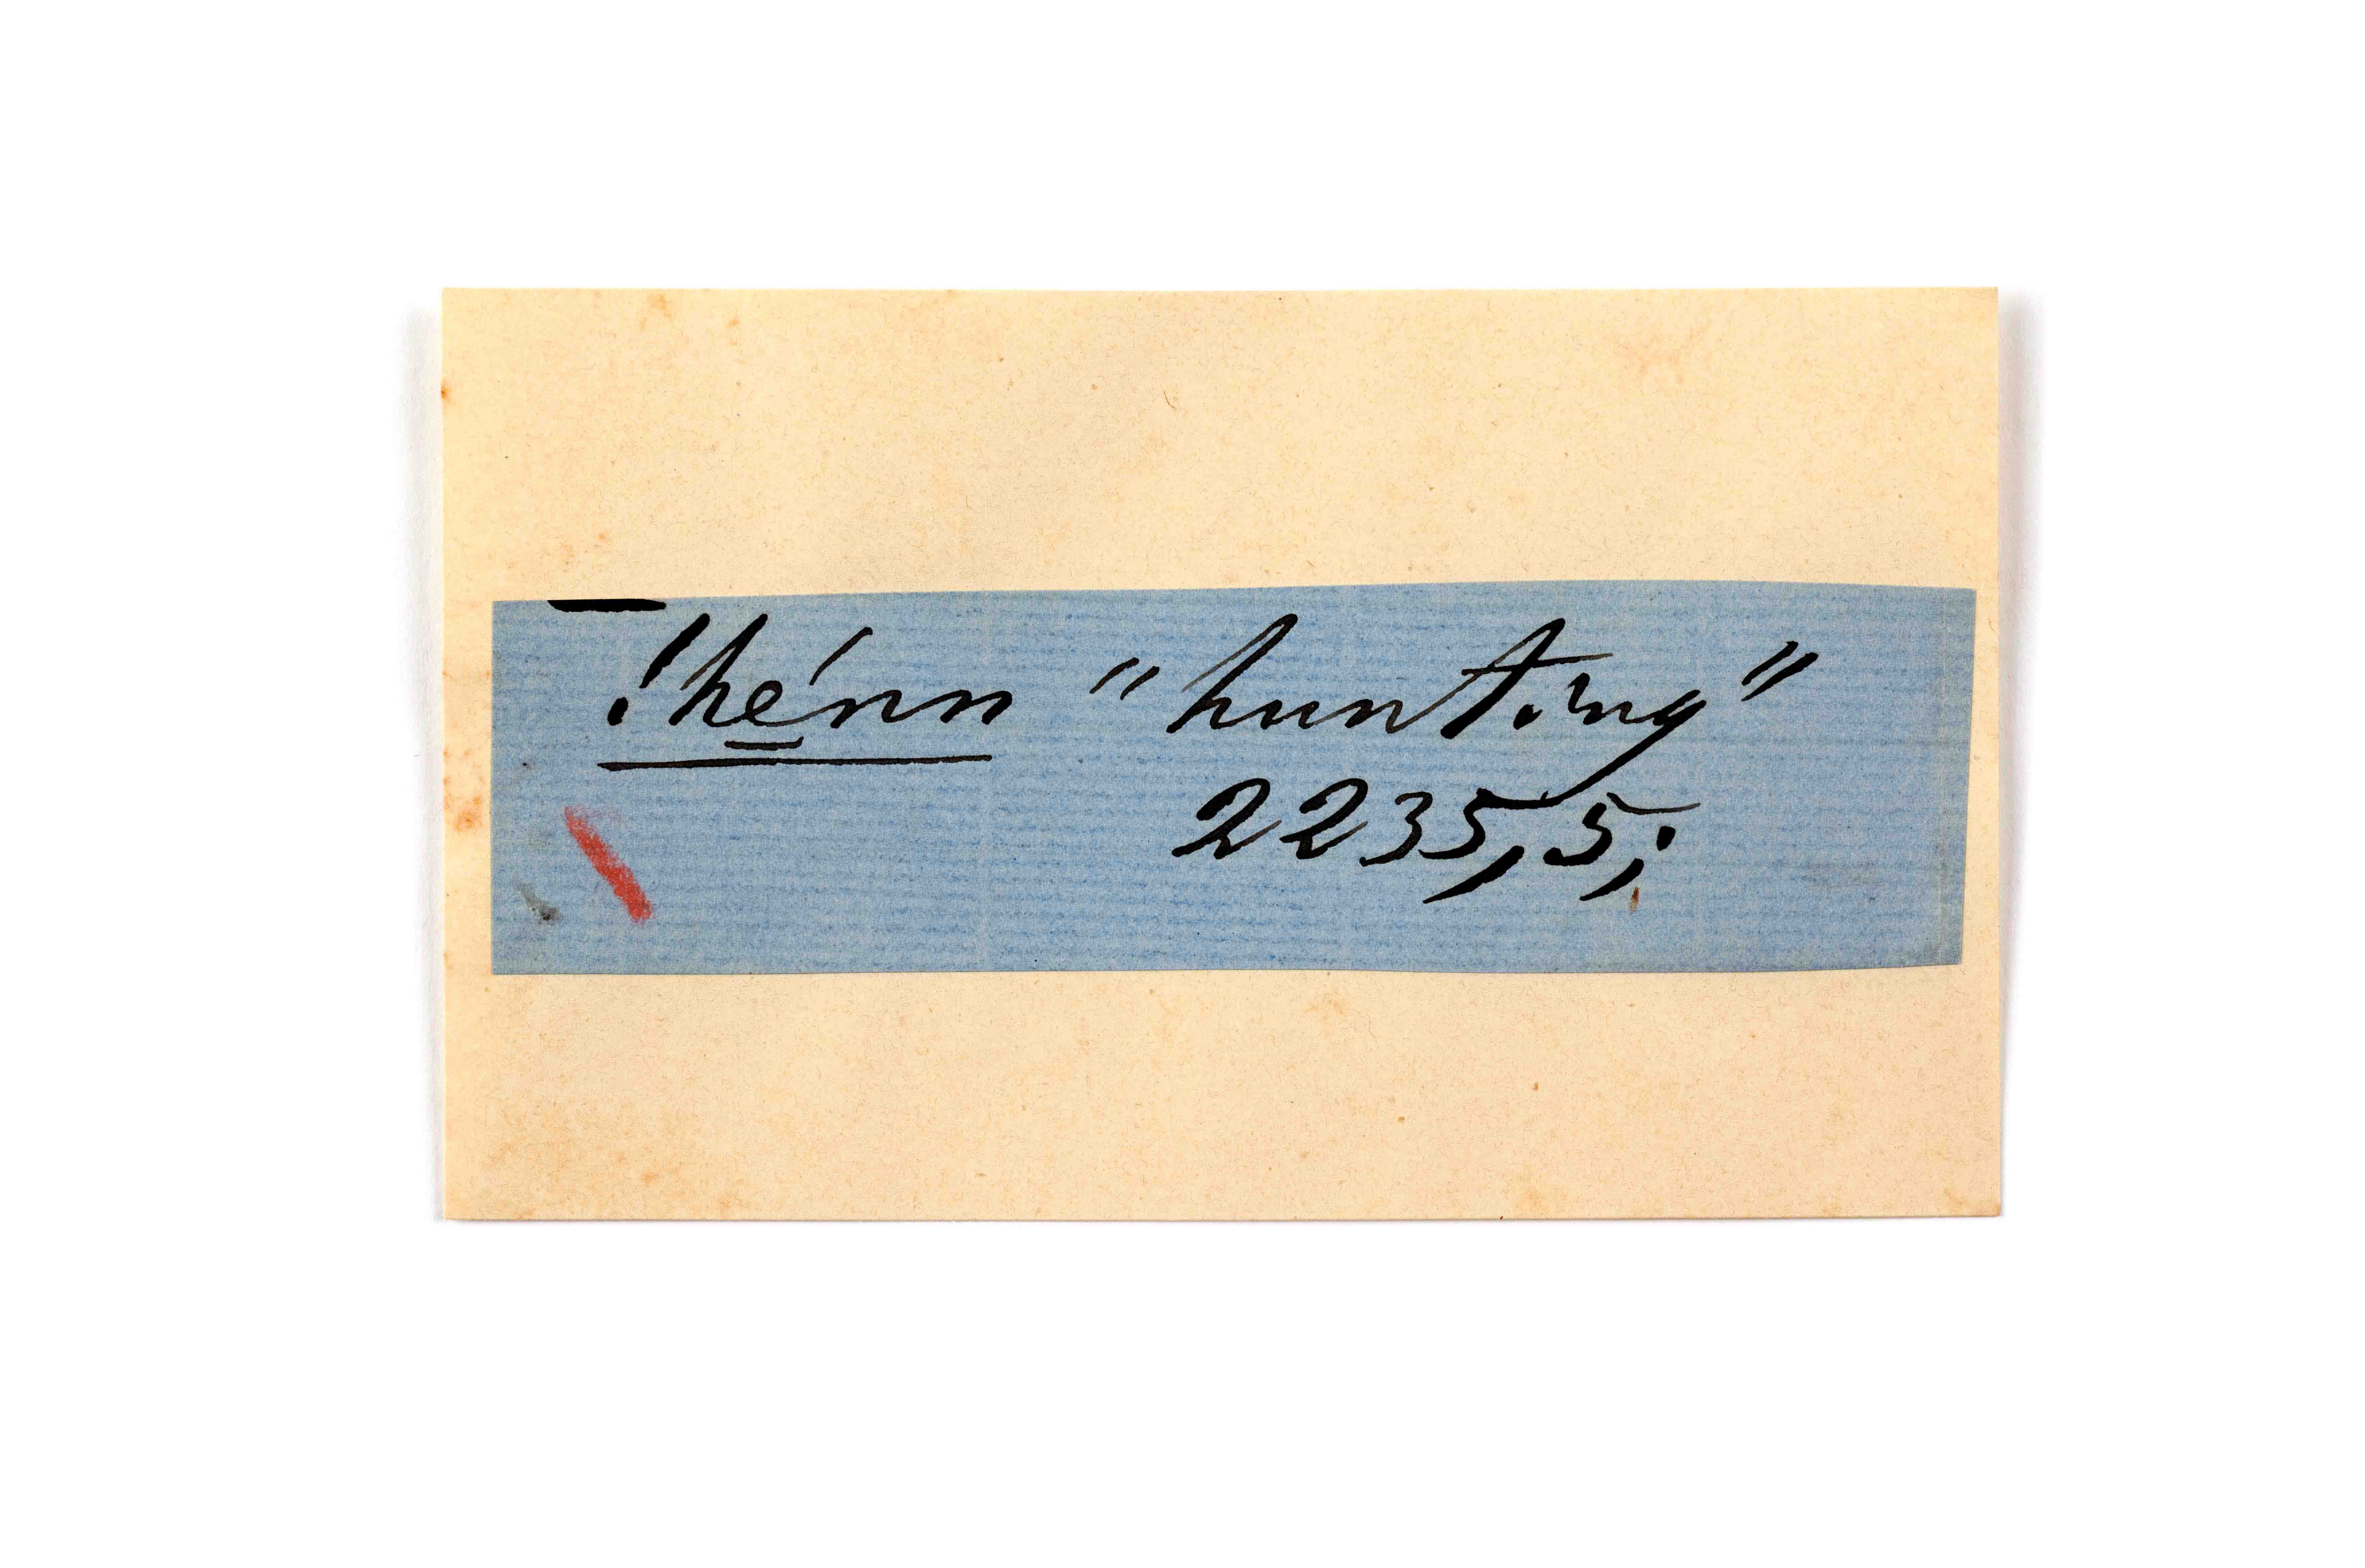 !hé̱nn "hunting"
2235,5;